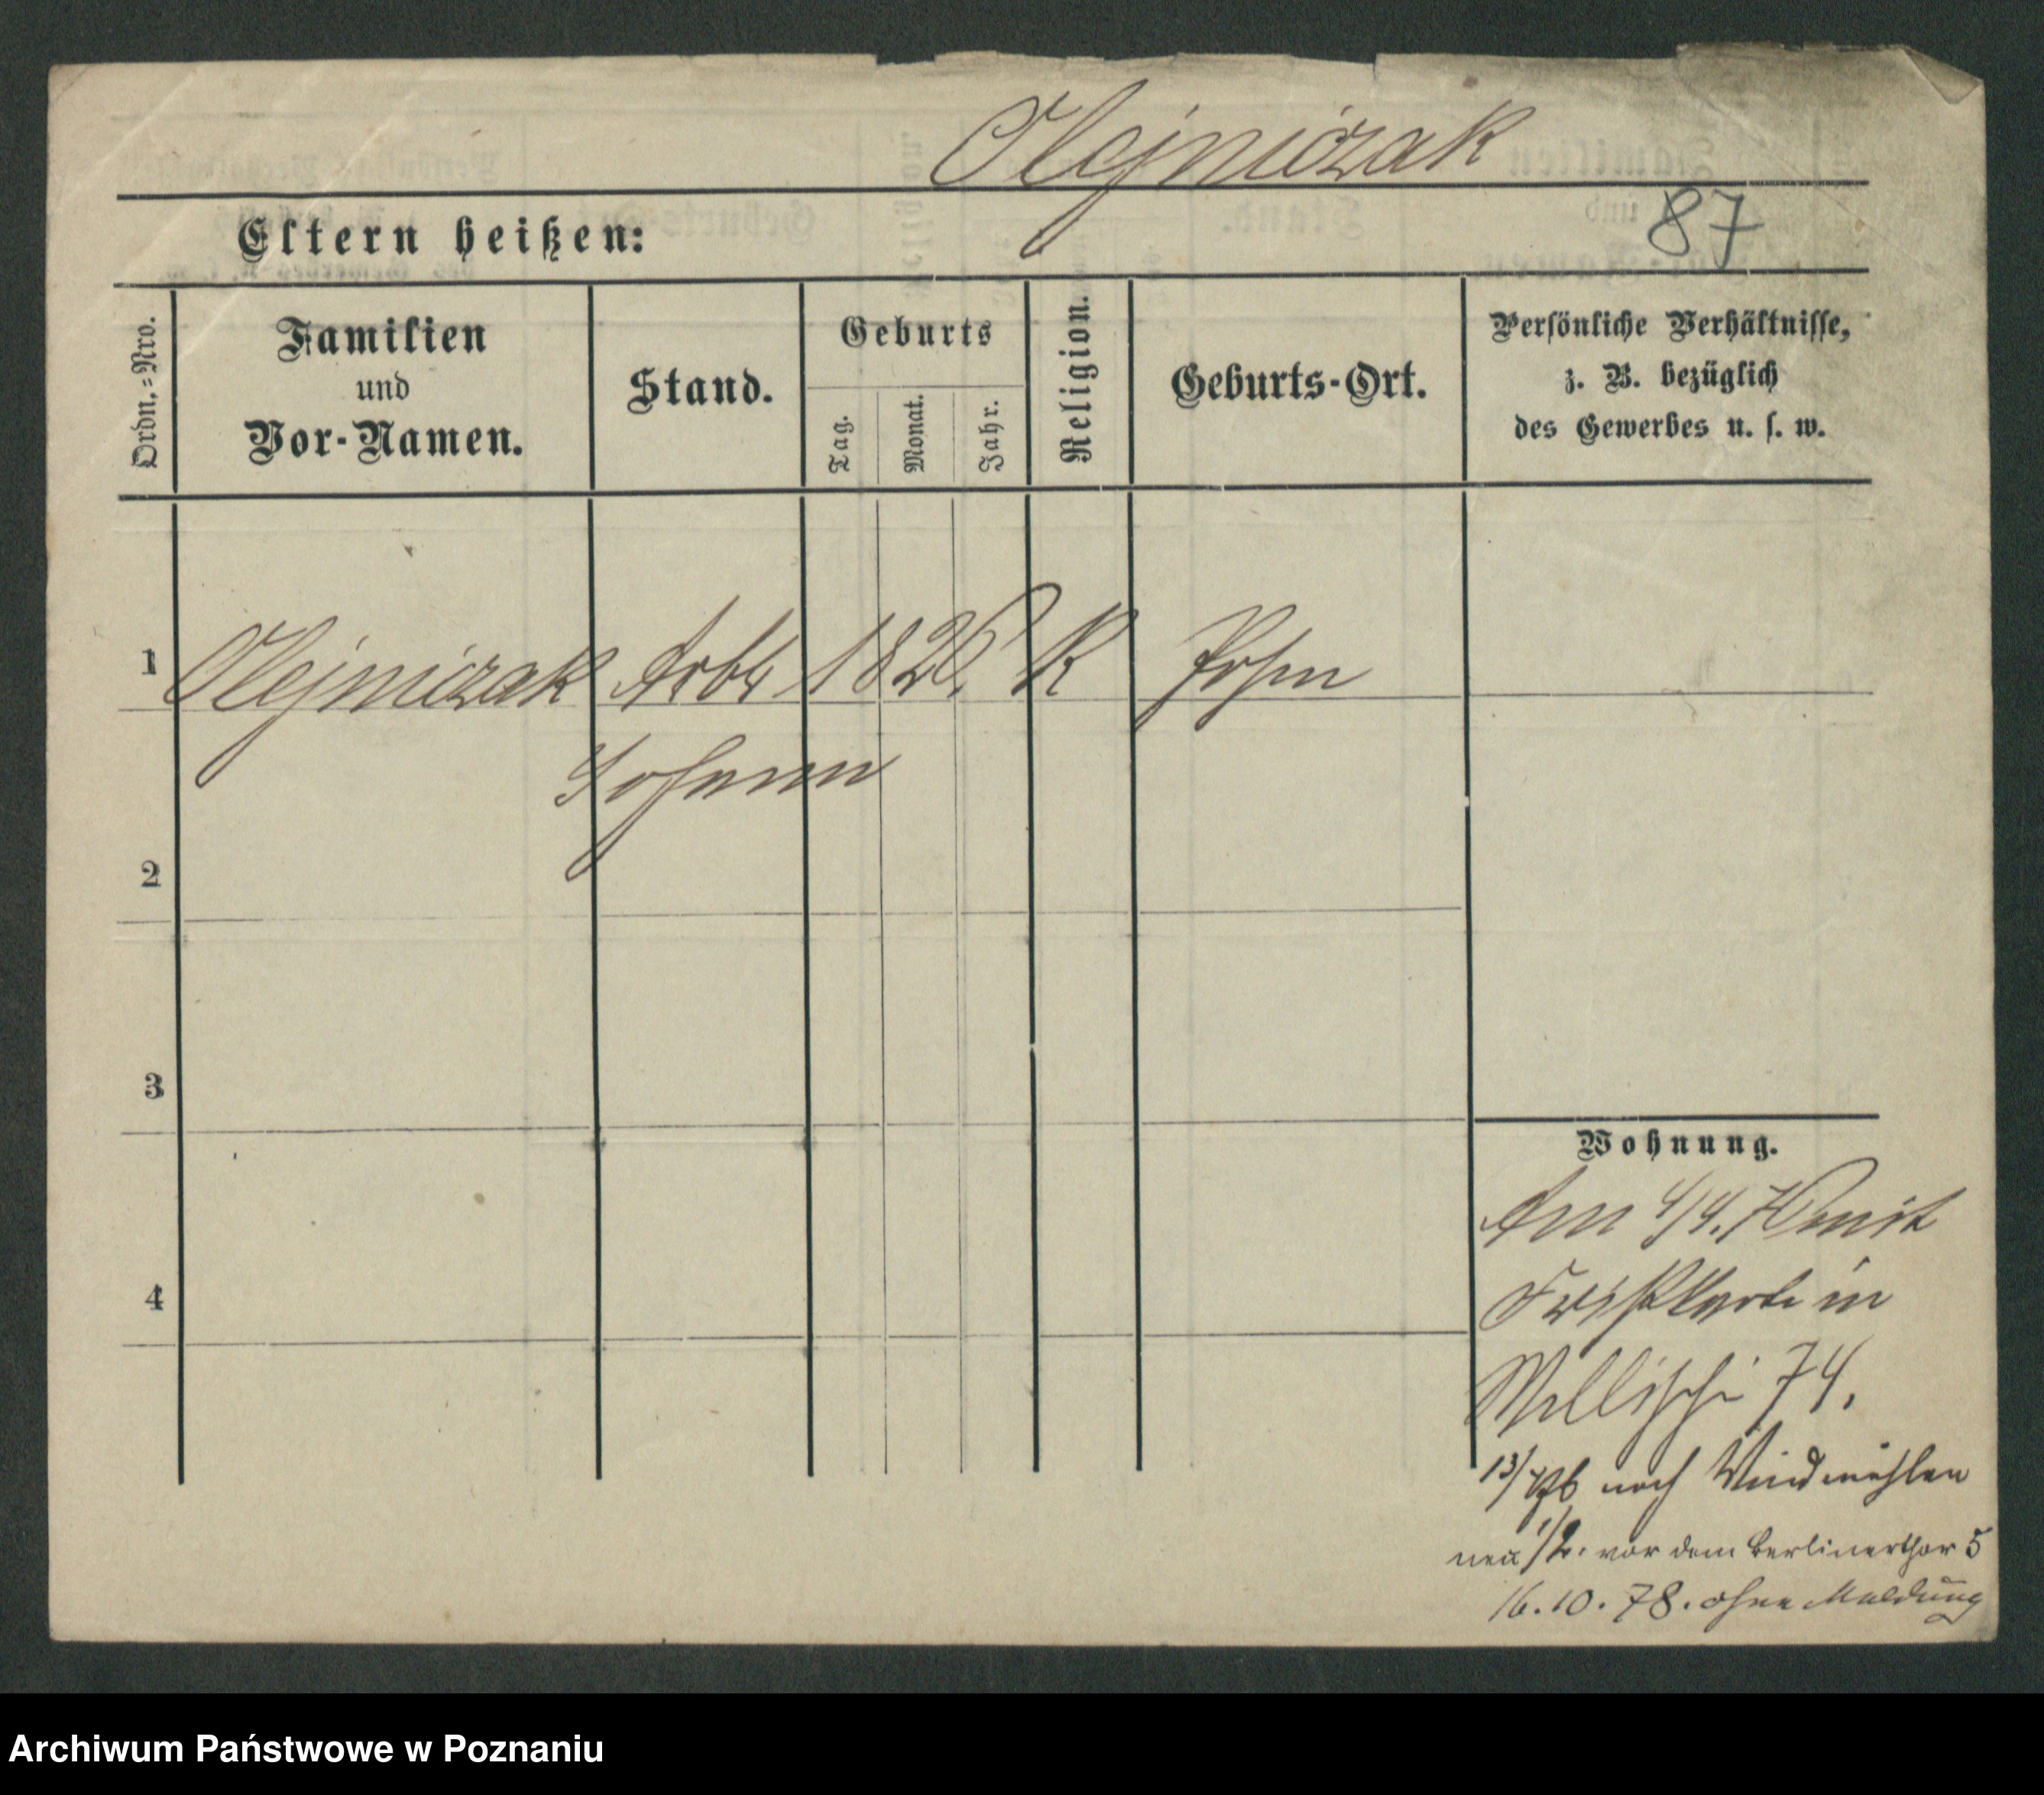 Olejniczak
87
Eltern heißen:
Ordn.=Nro.
Familien
und
Vor-Namen.
Stand.
Geburts
Tag.
Monat.
Jahr.
Religion.
Geburts-Ort.
Persönliche Verhältnisse,
z. B. bezüglich
des Gewerbes u. s. w.
1 Olejniczak Arbt 1826 K Posen
Johann
2
3
4
Wohnung.
Am 4/4. mit
in
74.
nach Windmühlen
neu 1/2. vor dem Berlinerthor 5
16.10.78. ohne Meldung
Archiwum Państwowe w Poznaniu